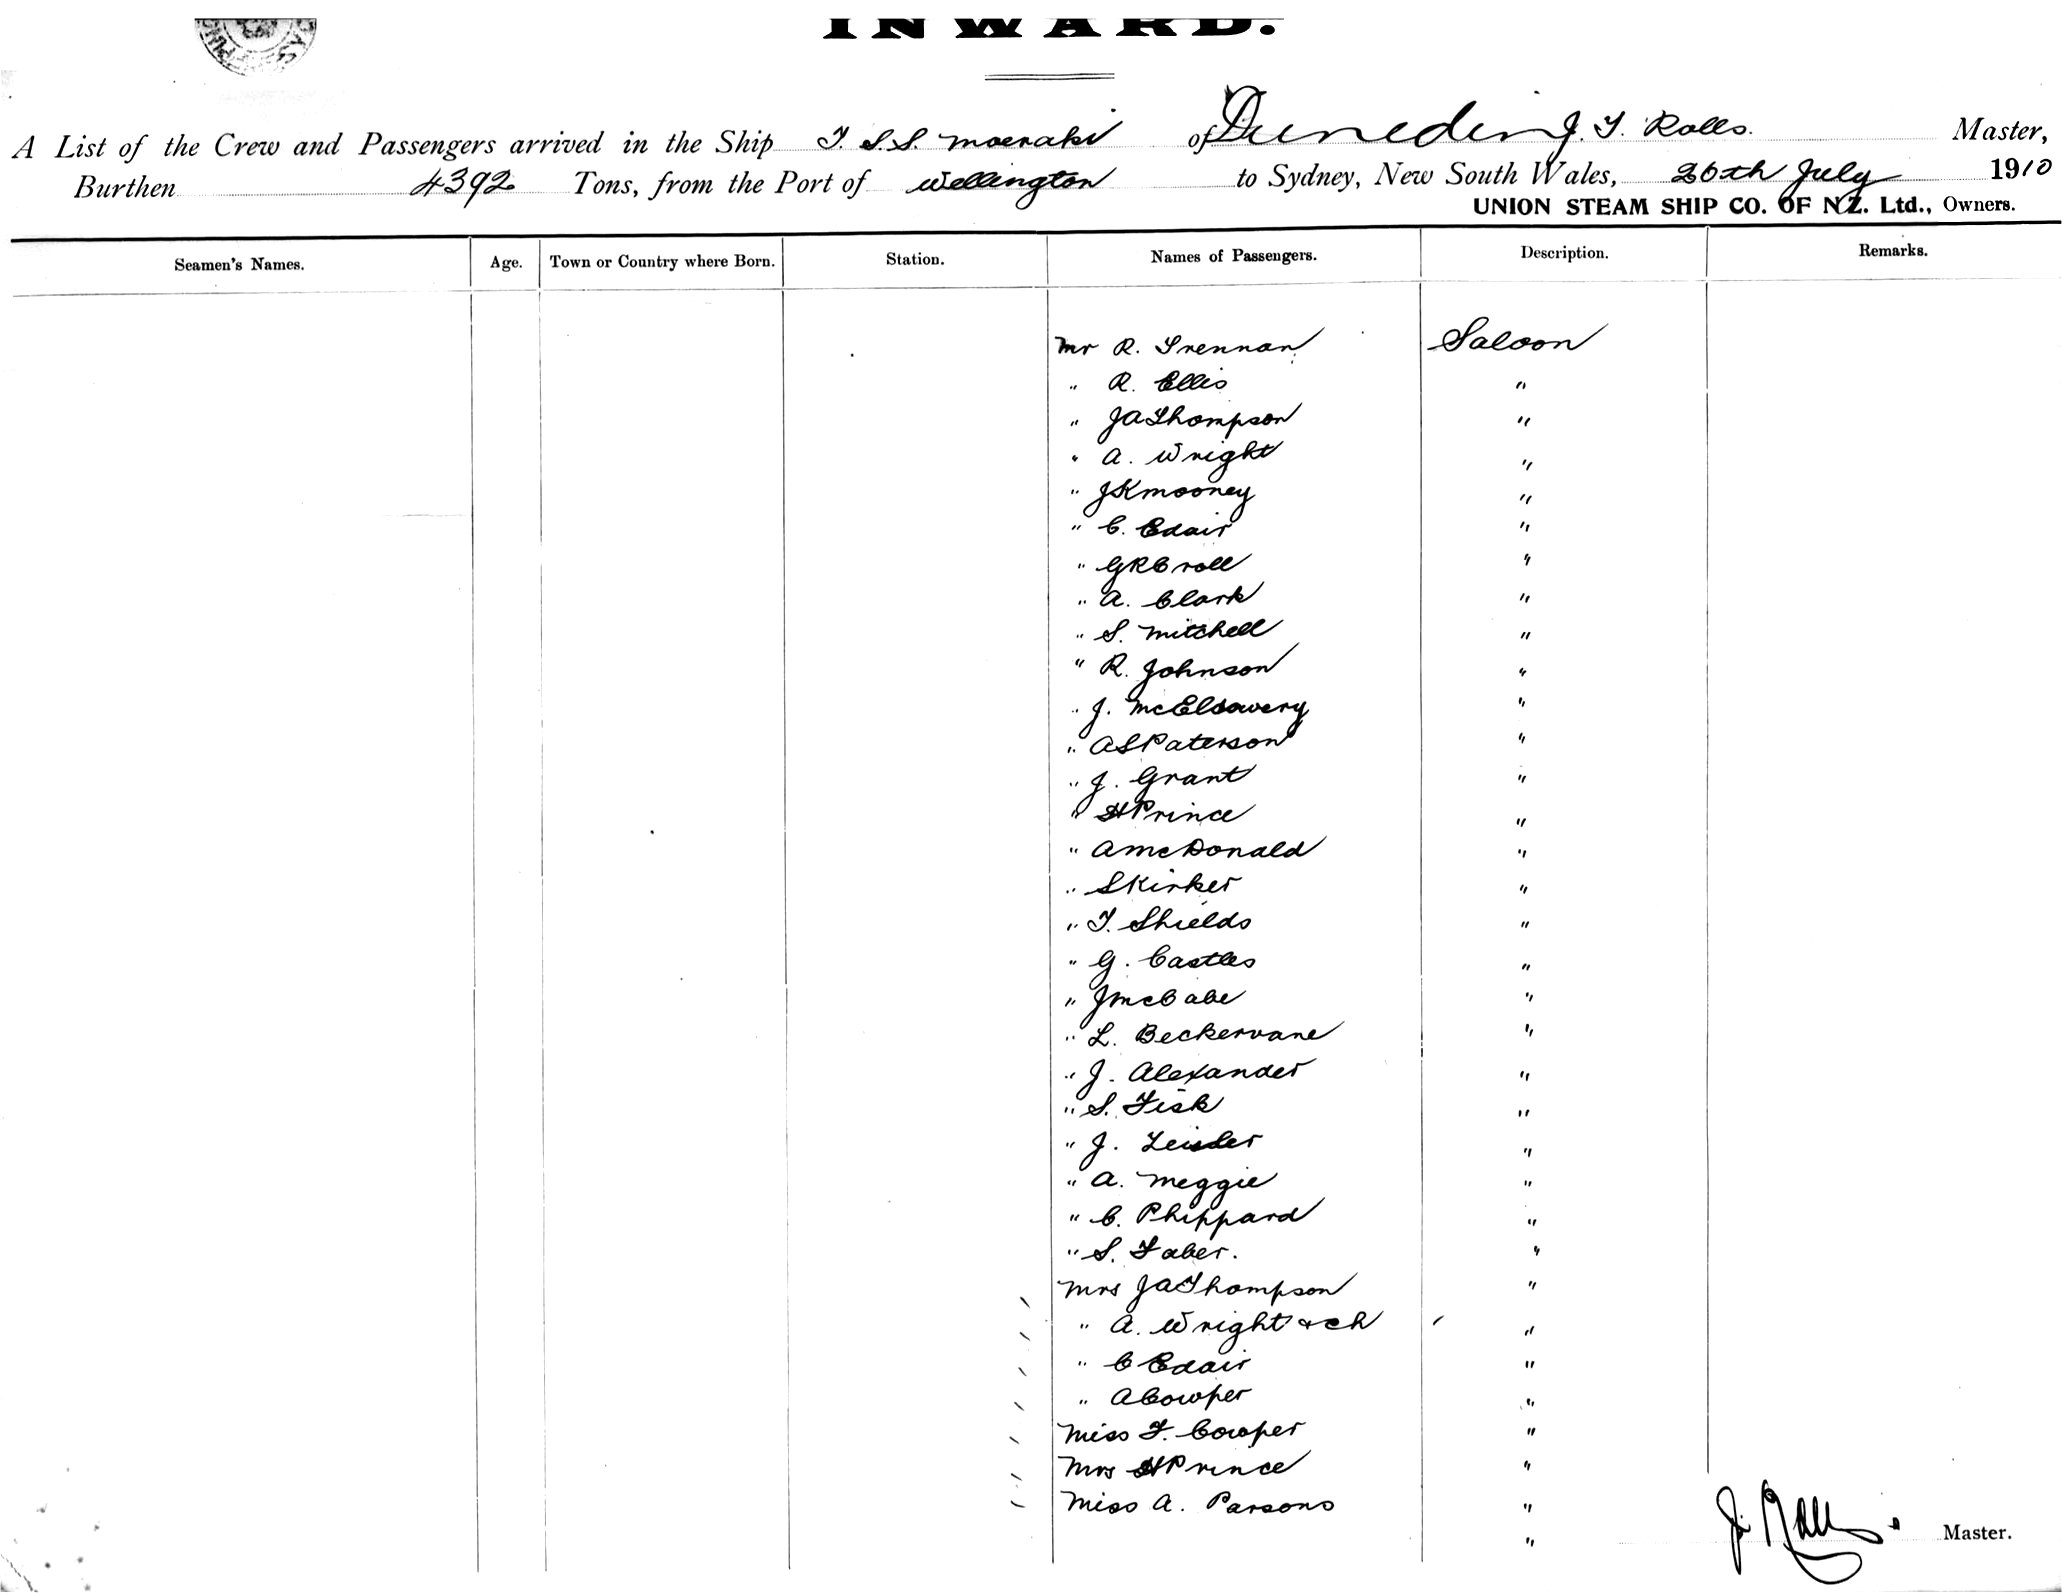 INWARD.
A List of the Crew and Passengers arrived in the Ship T. S.S. Moeraki of Dunedin J. T. Rolls. Master,
Burthen 4392 Tons, from the Port of Wellington to Sydney, New South Wales, 26th July 1910
UNION STEAM SHIP CO. OF N.Z. Ltd., Owners.
Seamen's Names. Age. Town or Country where Born. Station. Names of Passengers. Description. Remarks.
Mr R. Trennan Saloon
" R. Ellis "
" JA Thompson "
" A. Wright "
" JK Mooney "
" C. Edair "
" GR Croll "
" A. Clark "
" S. Mitchell "
" R. Johnson "
" J. "
" AS Paterson "
" J. Grant "
" H Prince "
" A McDonald "
" S Kirker "
" T. Shields "
" G. Castles "
" J McCabe "
" L. Beckervane "
" J. Alexander "
" S. Fisk "
" J. "
" A. Meggie "
" C. Phippard "
" S. Faber. "
Mrs JA Thompson "
" A. Wright & ch "
" C Edair "
" A Cowper "
Miss F. Cowper "
Mrs H Prince "
Miss A. Parsons "
"
J. Rolls. Master.